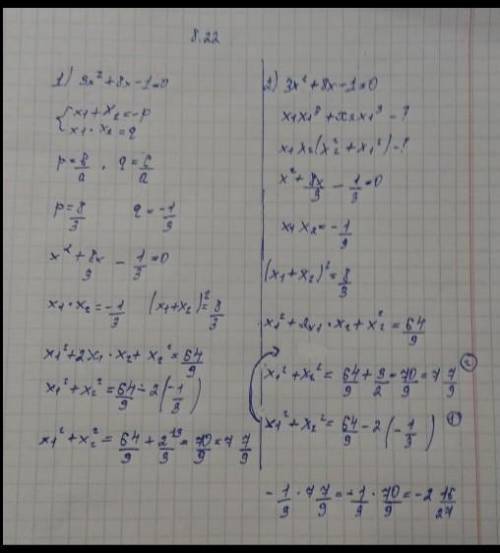 8.22
1) 3x² + 8x - 1 = 0
{ x₁ + x₂ = -p
x₁ · x₂ = q
p = b/a , q = c/a
p = 8/3 q = -1/3
x² + 8x/3 - 1/3 = 0
x₁ · x₂ = -1/3 (x₁ + x₂)² = 8/3
x₁² + 2x₁ · x₂ + x₂² = 64/9
x₁² + x₂² = 64/9 - 2(-1/3)
x₁² + x₂² = 64/9 + 2/3 = 70/9 = 7 7/9
2) 3x² + 8x - 1 = 0
x₁x₂³ + x₂x₁³ - ?
x₁x₂(x₂² + x₁²) - ?
x² + 8x/3 - 1/3 = 0
x₁x₂ = -1/3
(x₁ + x₂)² = 8/3
x₁² + 2x₁ · x₂ + x₂² = 64/9
x₁² + x₂² = 64/9 + 3/2 = 70/9 = 7 7/9 ②
x₁² + x₂² = 64/9 - 2(-1/3) ①
-1/3 · 7 7/9 = -1/3 · 70/9 = -2 16/27